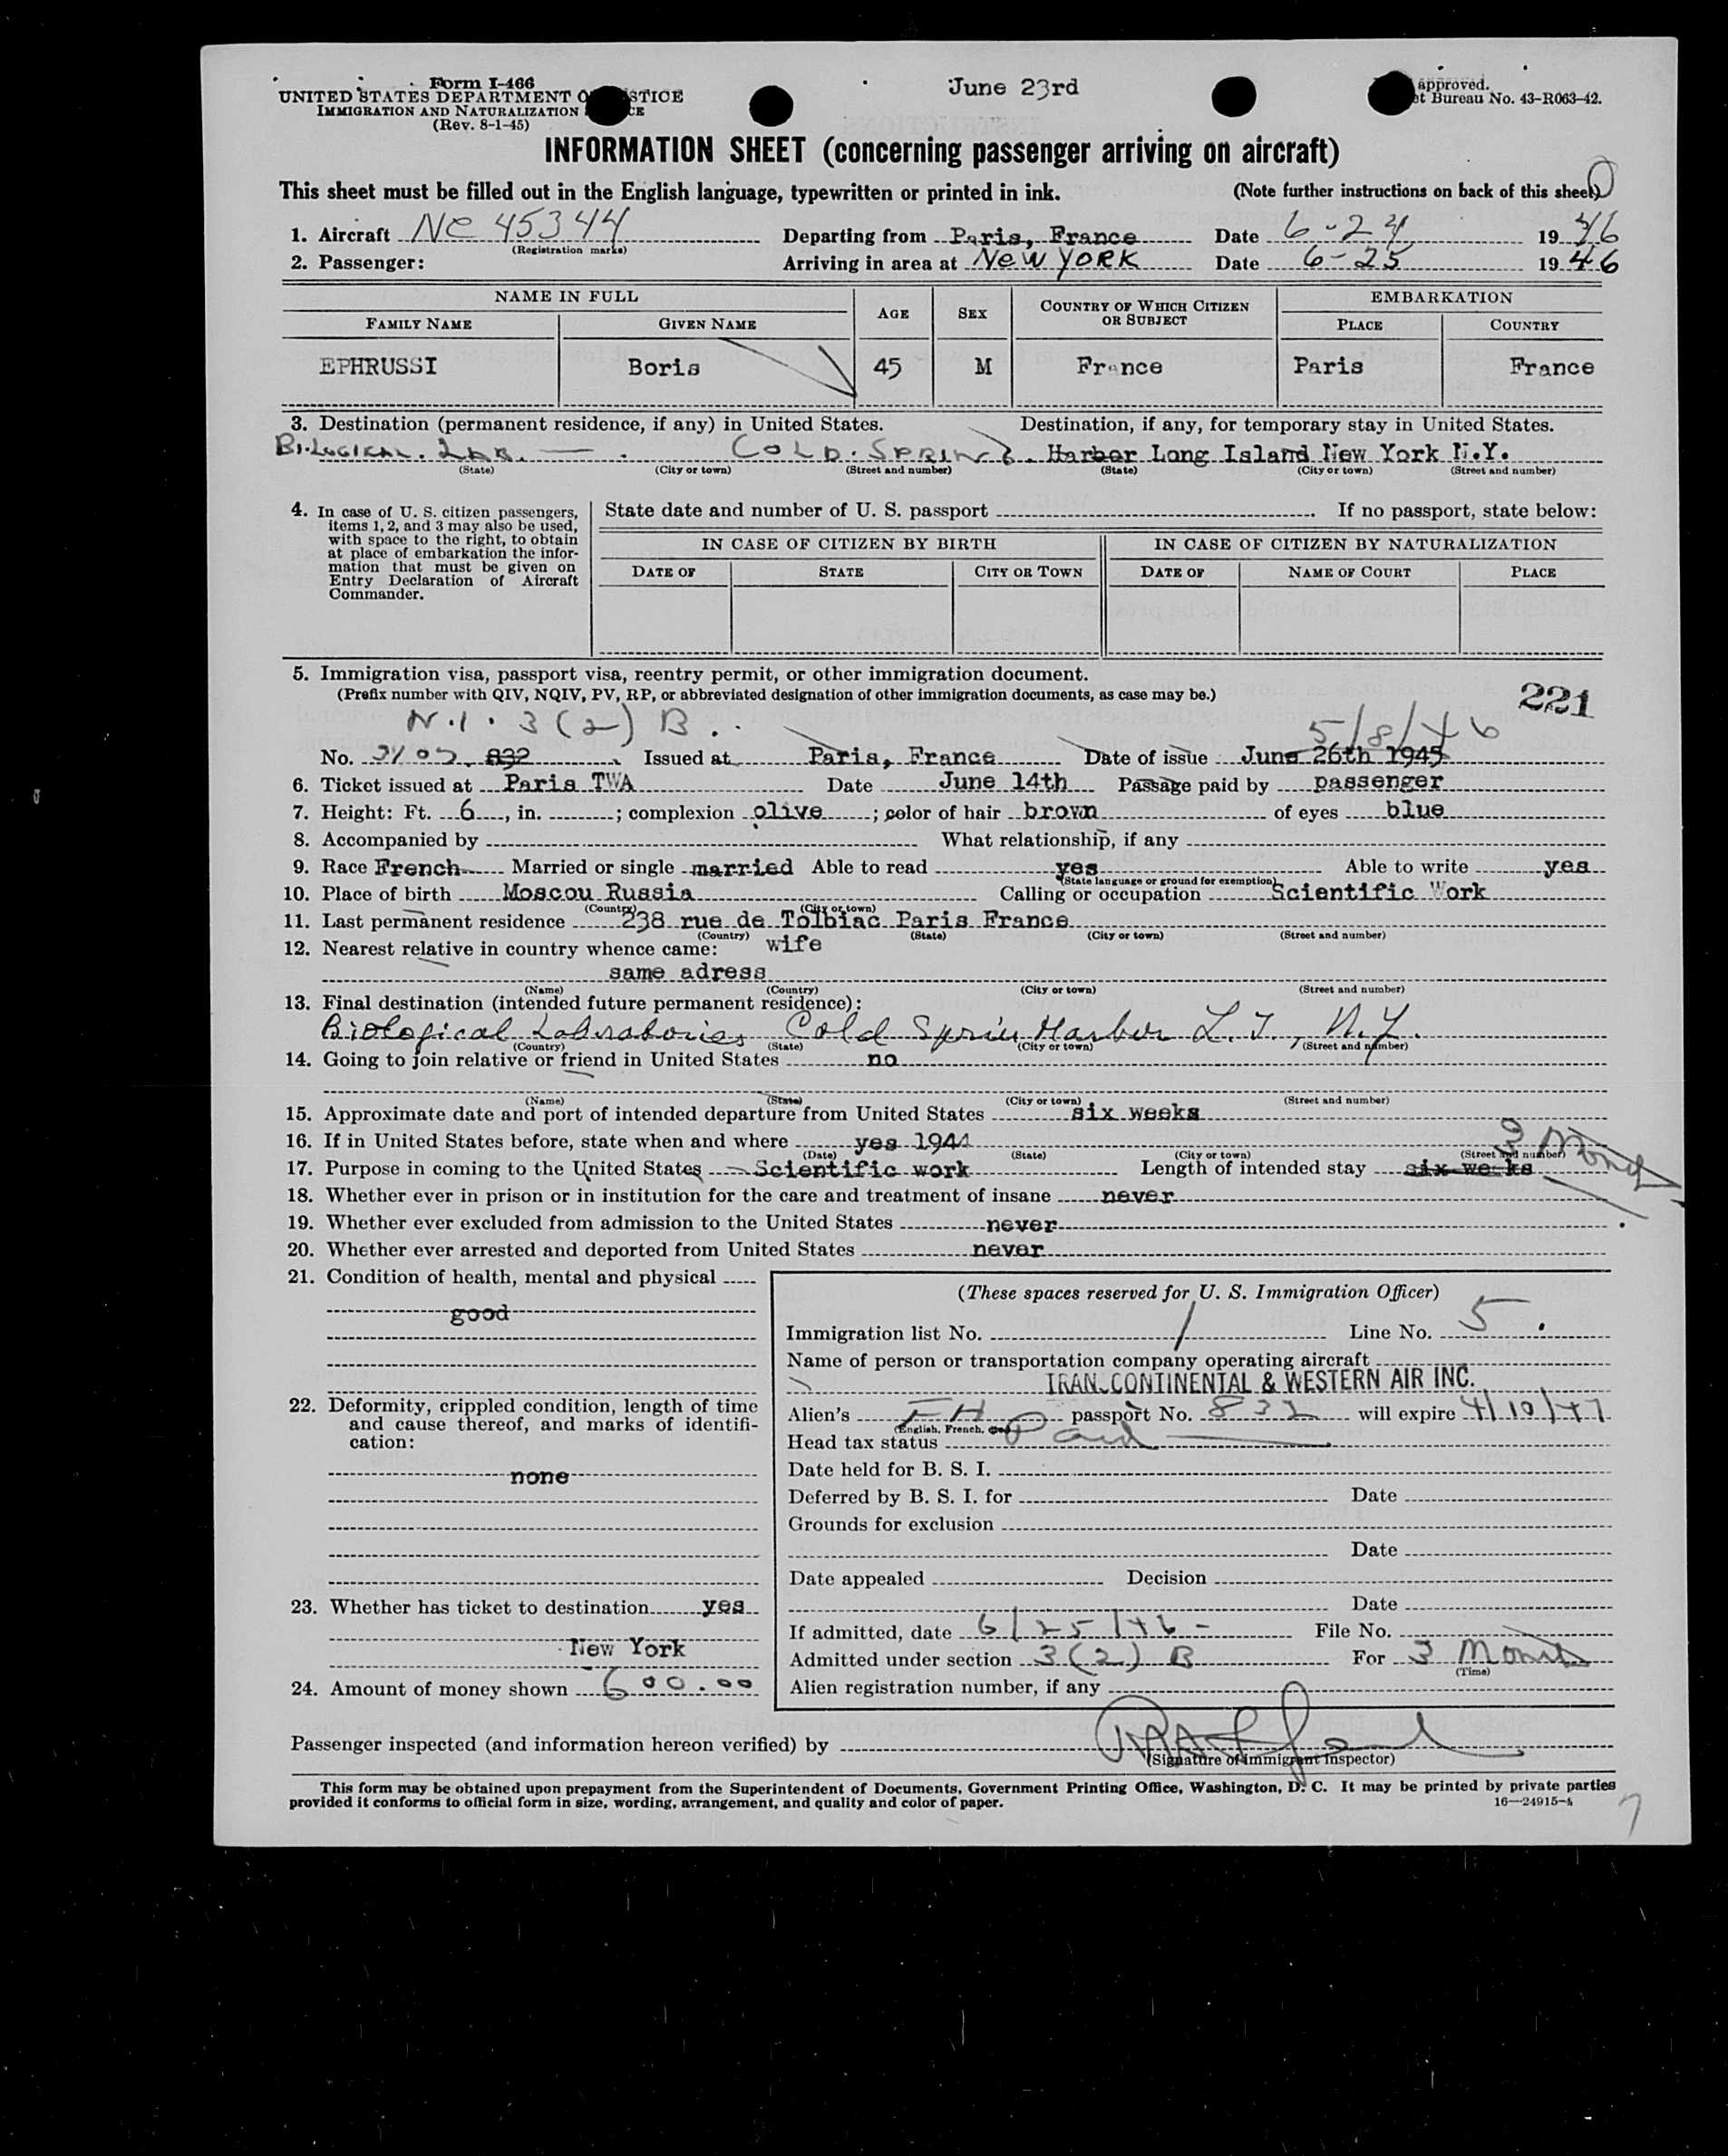 Form I-466
UNITED STATES DEPARTMENT O STICE
IMMIGRATION AND NATURALIZATION CE
(Rev. 8-1-45)
June 23rd
approved.
et Bureau No. 43-R063-42.
INFORMATION SHEET (concerning passenger arriving on aircraft)
This sheet must be filled out in the English language, typewritten or printed in ink. (Note further instructions on back of this sheet)
1. Aircraft Nc 45344 Departing from Paris, France Date 6-24 1946
(Registration marks)
2. Passenger: Arriving in area at New YORK Date 6-25 1946
NAME IN FULL AGE SEX COUNTRY OF WHICH CITIZEN OR SUBJECT EMBARKATION
FAMILY NAME GIVEN NAME PLACE COUNTRY
EPHRUSSI Boris 45 M France Paris France
3. Destination (permanent residence, if any) in United States. Destination, if any, for temporary stay in United States.
BIOLOGICAL LAB. — COLD SPRING Harbor Long Island New York N.Y.
(State) (City or town) (Street and number) (State) (City or town) (Street and number)
4. In case of U. S. citizen passengers,
items 1, 2, and 3 may also be used,
with space to the right, to obtain
at place of embarkation the infor-
mation that must be given on
Entry Declaration of Aircraft
Commander.
State date and number of U. S. passport If no passport, state below:
IN CASE OF CITIZEN BY BIRTH IN CASE OF CITIZEN BY NATURALIZATION
DATE OF STATE CITY OR TOWN DATE OF NAME OF COURT PLACE
5. Immigration visa, passport visa, reentry permit, or other immigration document.
(Prefix number with QIV, NQIV, PV, RP, or abbreviated designation of other immigration documents, as case may be.)
221
N.I. 3 (2) B. 5/8/46
No. 832 Issued at Paris, France Date of issue June 26th 1945
6. Ticket issued at Paris TWA Date June 14th Passage paid by passenger
7. Height: Ft. 6, in. ; complexion olive ; color of hair brown of eyes blue
8. Accompanied by What relationship, if any
9. Race French Married or single married Able to read yes Able to write yes
(State language or ground for exemption)
10. Place of birth Moscou Russia Calling or occupation Scientific Work
(Country) (City or town)
11. Last permanent residence 238 rue de Tolbiac Paris France
(Country) (State) (City or town) (Street and number)
12. Nearest relative in country whence came: wife
same adress
(Name) (Country) (City or town) (Street and number)
13. Final destination (intended future permanent residence):
Biological Laboratories Cold Spring Harbor L. I., N.Y.
(Country) (State) (City or town) (Street and number)
14. Going to join relative or friend in United States no
(Name) (State) (City or town) (Street and number)
15. Approximate date and port of intended departure from United States six weeks
16. If in United States before, state when and where yes 1944
(Date) (State) (City or town) (Street and number)
3 Months
17. Purpose in coming to the United States Scientific work Length of intended stay six weeks
18. Whether ever in prison or in institution for the care and treatment of insane never
19. Whether ever excluded from admission to the United States never
20. Whether ever arrested and deported from United States never
21. Condition of health, mental and physical
good
22. Deformity, crippled condition, length of time
and cause thereof, and marks of identifi-
cation:
none
23. Whether has ticket to destination yes
New York
24. Amount of money shown 600.00
(These spaces reserved for U. S. Immigration Officer)
Immigration list No. 1 Line No. 5
Name of person or transportation company operating aircraft
TRANSCONTINENTAL & WESTERN AIR INC.
Alien's FH passport No. 832 will expire 4/10/47
(English, French, etc.)
Head tax status Paid
Date held for B. S. I.
Deferred by B. S. I. for Date
Grounds for exclusion
Date
Date appealed Decision
Date
If admitted, date 6/25/46 - File No.
Admitted under section 3(2) B For 3 Months
(Time)
Alien registration number, if any
Passenger inspected (and information hereon verified) by
(Signature of Immigrant Inspector)
This form may be obtained upon prepayment from the Superintendent of Documents, Government Printing Office, Washington, D. C. It may be printed by private parties
provided it conforms to official form in size, wording, arrangement, and quality and color of paper. 16—24915-1
7